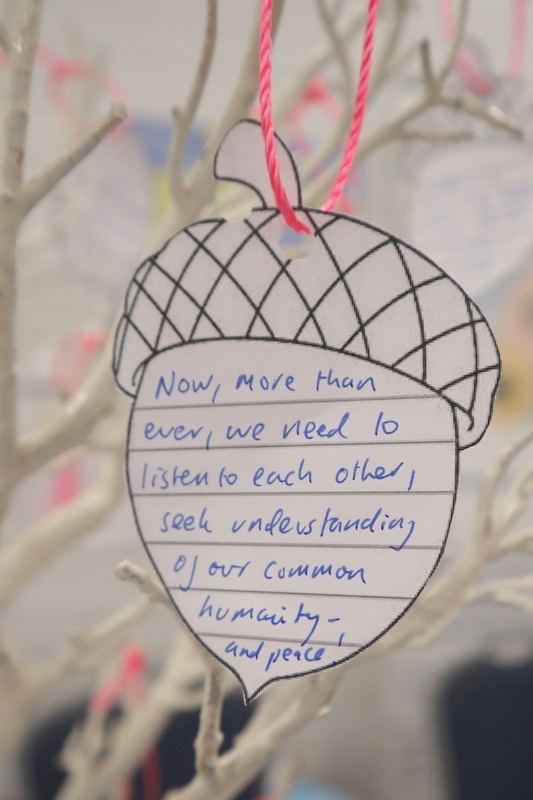 Now, more than
ever, we need to
listen to each other,
seek understanding
of our common
humanity-
and peace!